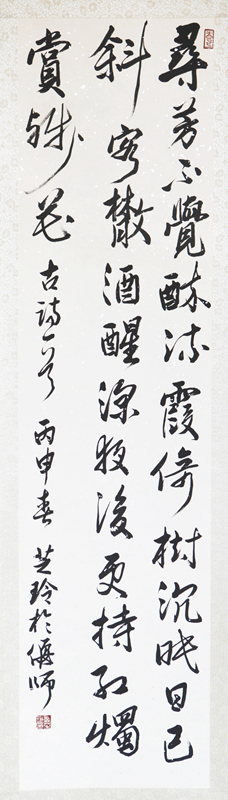 尋芳不覺酥流霞倚樹沉眠日已
斜客散酒醒深夜後更持紅燭
賞殘花古詩一首丙申春芝玲於偃師